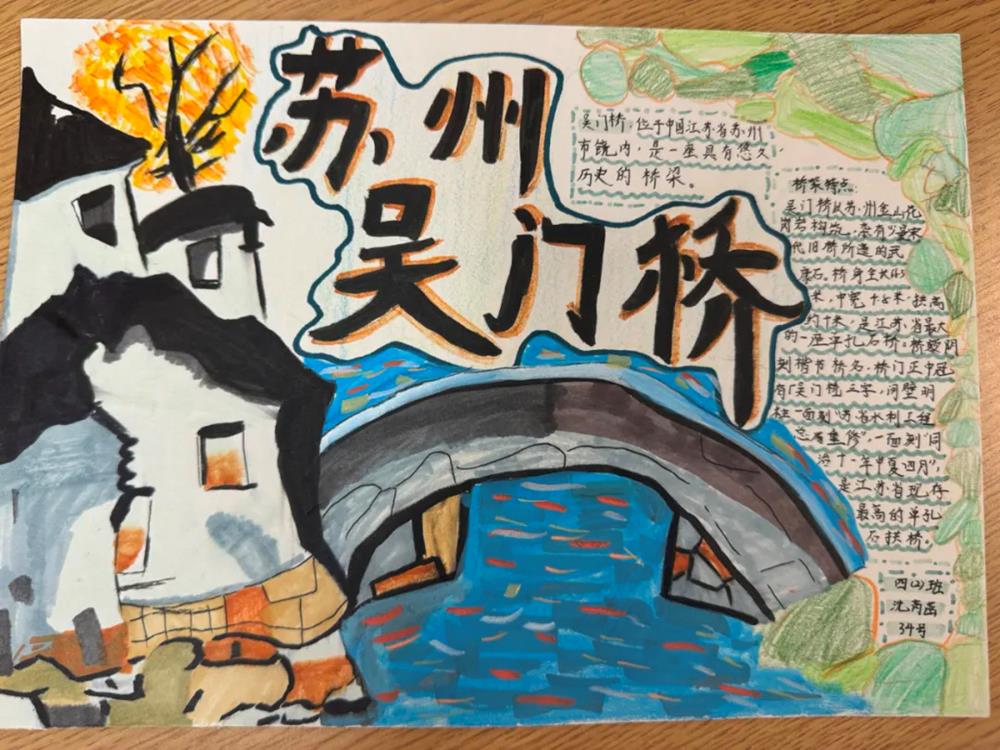 苏州
吴门桥
吴门桥，位于中国江苏省苏州
市境内，是一座具有悠久
历史的桥梁。
桥梁特点：
吴门桥以苏州金山花
岗岩构筑。杂有少量宋
代旧桥所遗的武
康石。桥身全长
米，中宽4.8米，拱高
约 米，是江苏省最大
的一座单孔石桥。桥
刻楷书桥名，桥门正中冠
有"吴门桥"三字，间壁明
柱一面刻"苏省水利工程
总局重修"。一面刻"同
治十一年中夏四月"，
是江苏省现存
最高的单孔
石拱桥。
四(2)班
沈芮函
34号